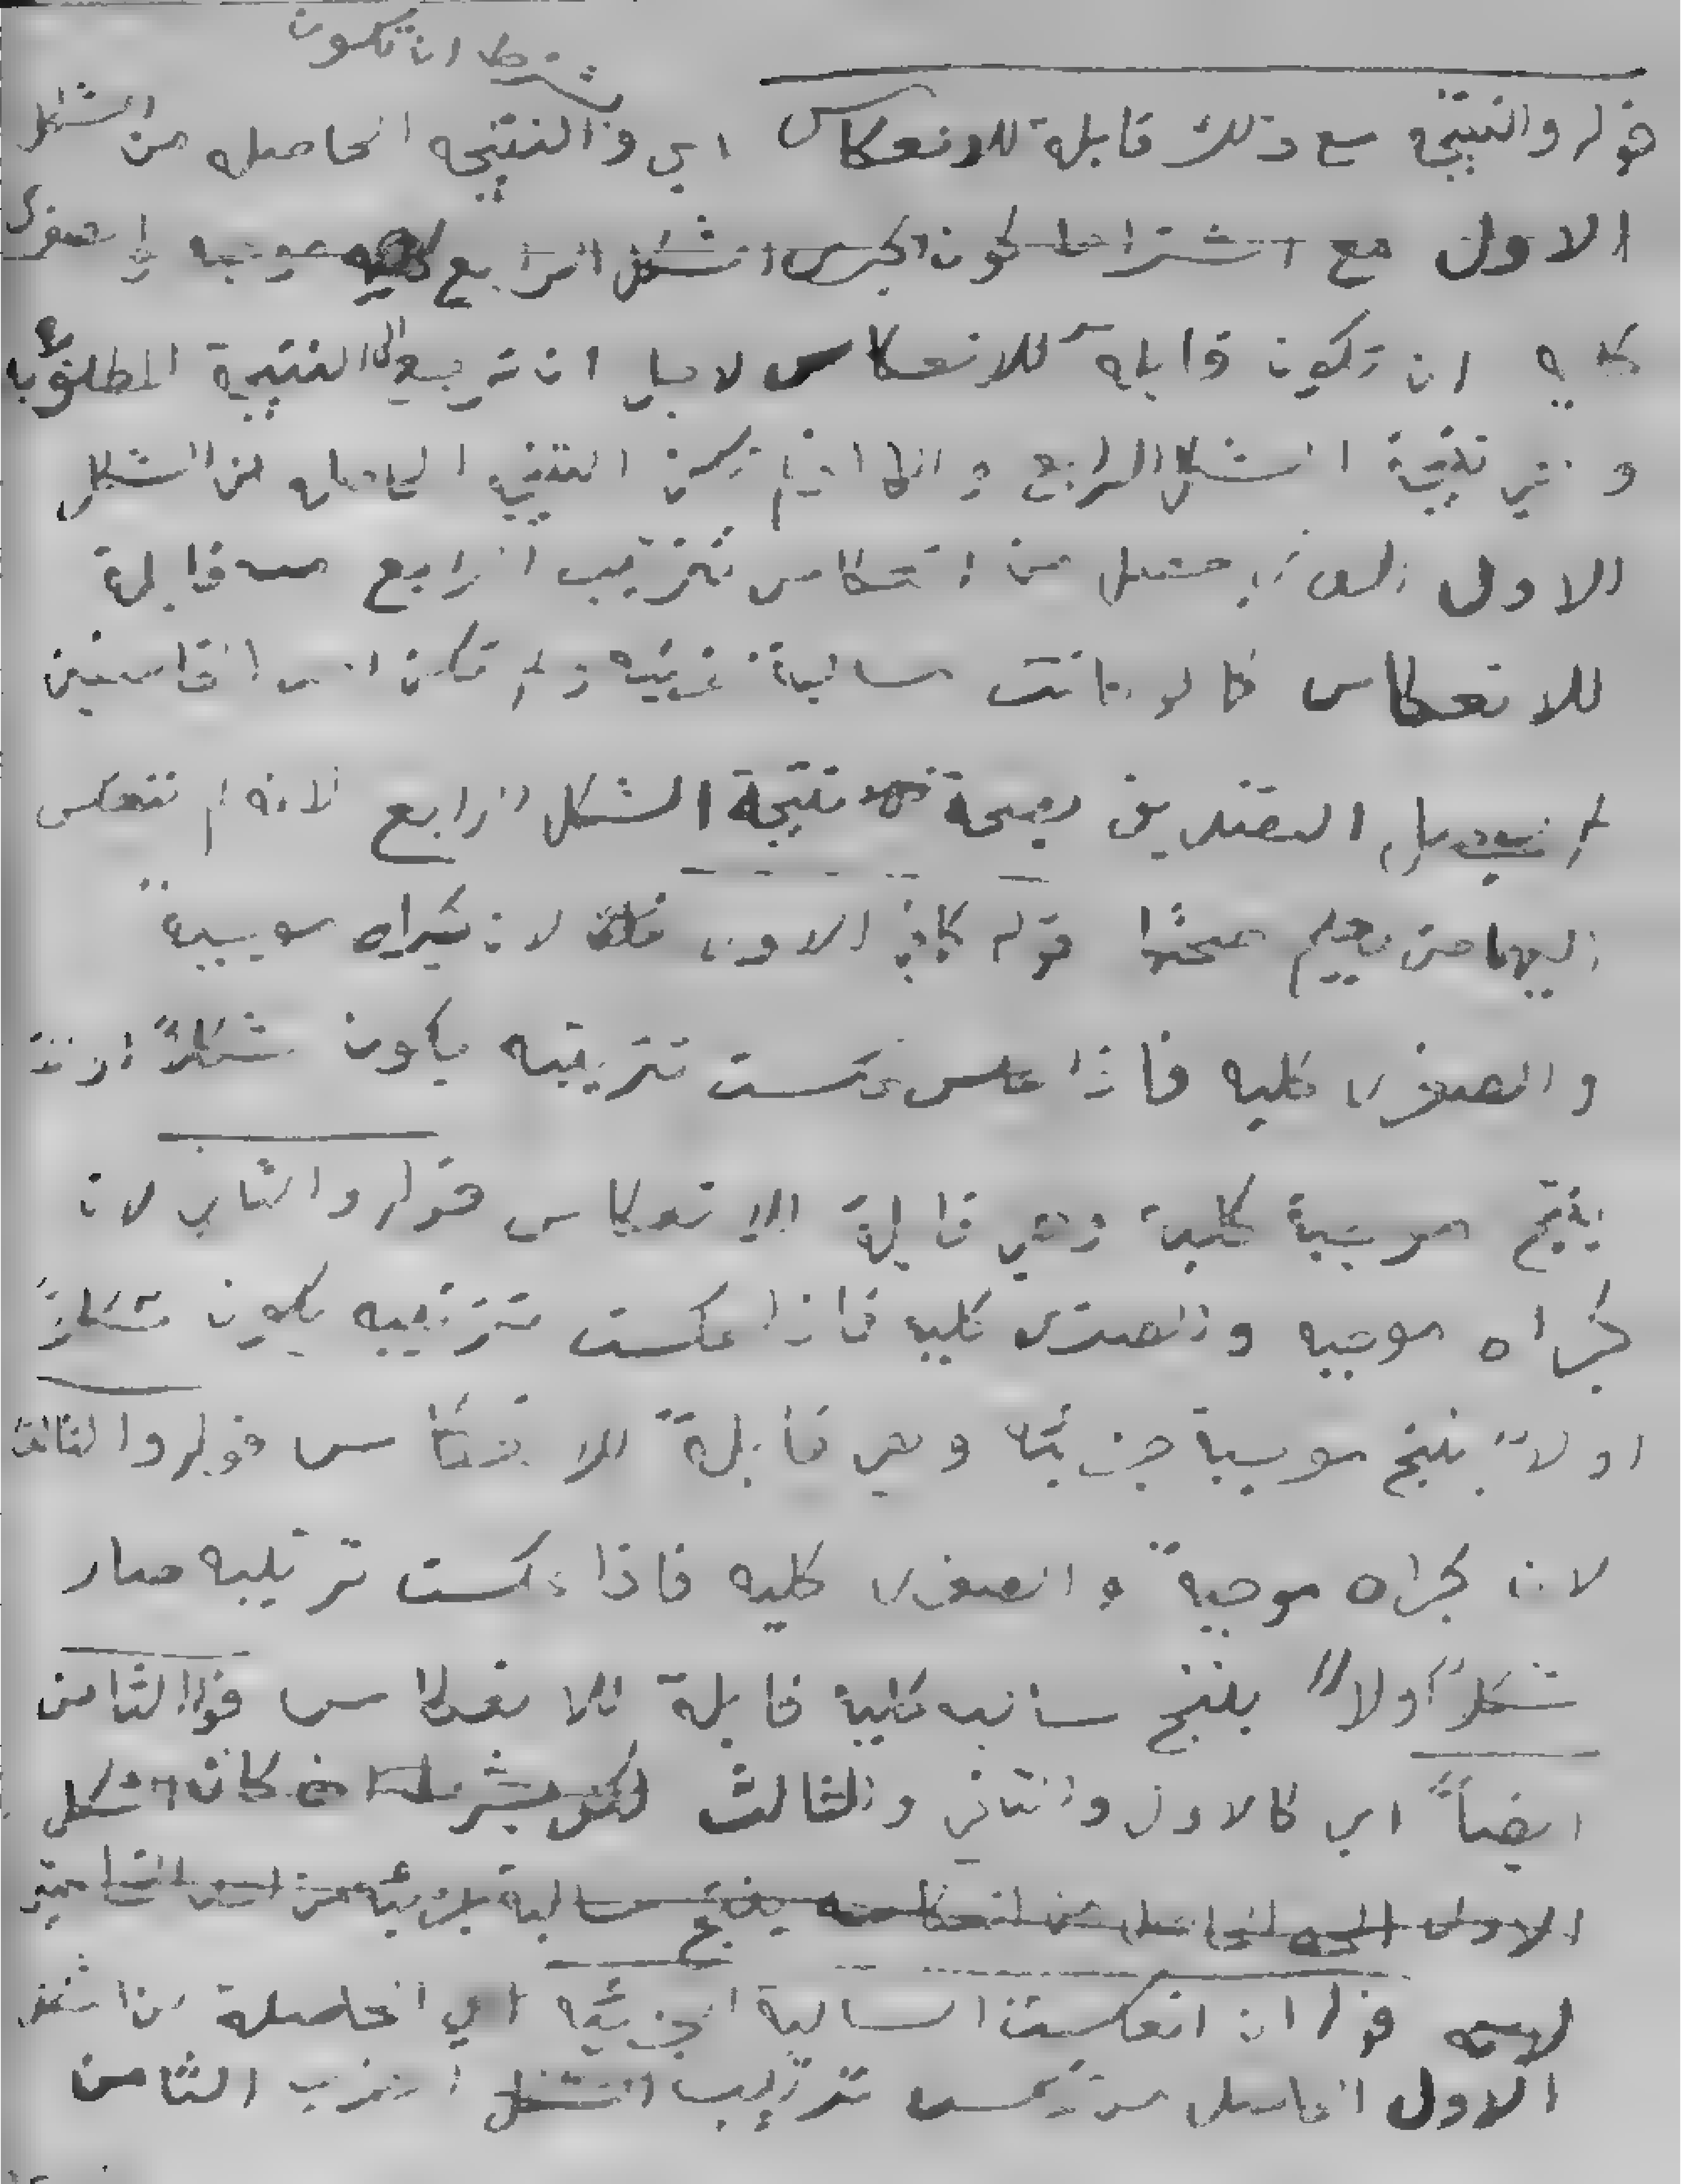 بشرط ان تكون
قوله والنتيجة مع ذلك قابلة للانعكاس اي والنتيجه الحاصله من الشكل
الاول مع اشتراط كون كبرى الشكل الرابع كليه موجبه و صغرى
كليه ان تكون قابلة للانعكاس لاجل ان ترجع الى النتيجة المطلوبه
و هي نتيجة الشكل الرابع و اما اذا لم تكن النتيجه الحاصله من الشكل
الاول الذي حصل من انعكاس ترتيب الرابع قابلة
للانعكاس كما لو كانت سالبة جزئيه و لم تكن احدى الخاصتين
لم يحصل التصديق بصحة نتيجة الشكل الرابع لانه لم تنعكس
اليها حتى يعلم صحتها قوله كما في الاول لان كبراه موجبة
والصغرى كليه فاذا عكست ترتيبه يكون شكلاً اولاً
ينتج موجبة كلية وهي قابلة للانعكاس قوله والثاني لان
كبراه موجبه والصغرى كليه فاذا عكست ترتيبه يكون شكلاً
اولاً ينتج موجبة جزئية وهي قابلة للانعكاس قوله والثالث
لان كبراه موجبة و الصغرى كليه فاذا عكست ترتيبه صار
شكلاً اولاً ينتج سالبه كلية قابلة للانعكاس قوله الثامن
ايضاً اي كالاول والثاني والثالث لكن بشرط ان كان الشكل
الاول الحاصل من انعكاسه ينتج سالبة جزئيه من احدى الخاصتين
قوله ان انعكست السالبة الجزئيه اي الحاصلة من الشكل
الاول الحاصل من عكس ترتيب الشكل الضرب الثامن